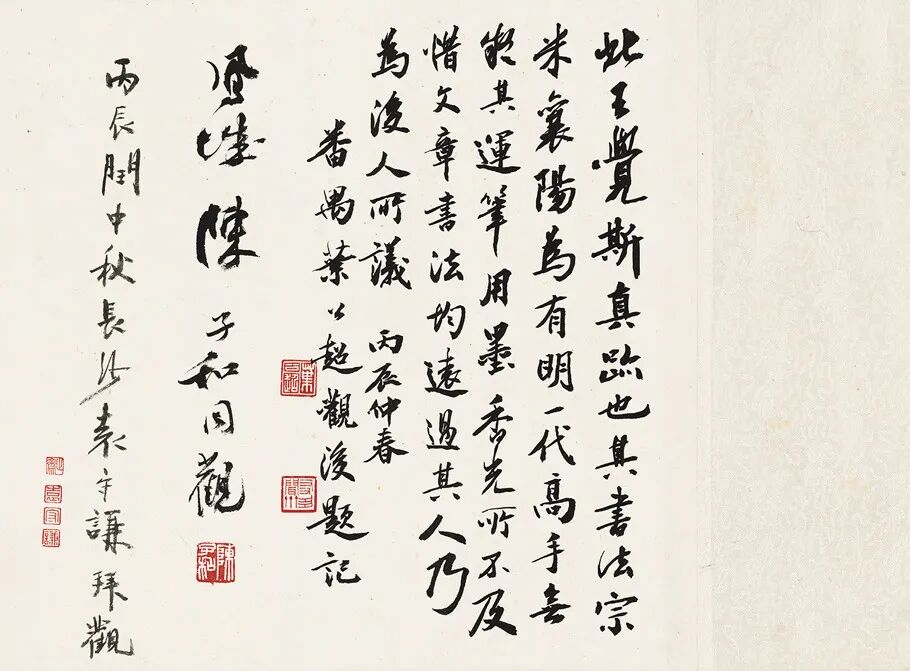 此王覺斯真跡也其書法宗
米襄陽為有明一代高手無
疑其運筆用墨香光所不及
惜文章書法均遠過其人乃
為後人所議 丙辰仲春
番禺葉公超觀後題記
陳子和同觀
丙辰閏中秋長沙袁守謙拜觀